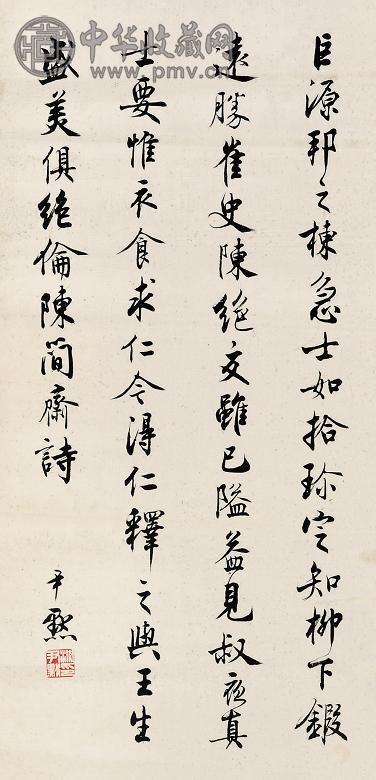 中华收藏网
www.pmv.cn
巨源邦之棟急士如拾珍定知柳下鍛
遠勝崔史陳絶交雖已隘益見叔夜真
士要惟衣食求仁今得仁釋之與王生
盛美俱絶倫陳簡齋詩
尹默